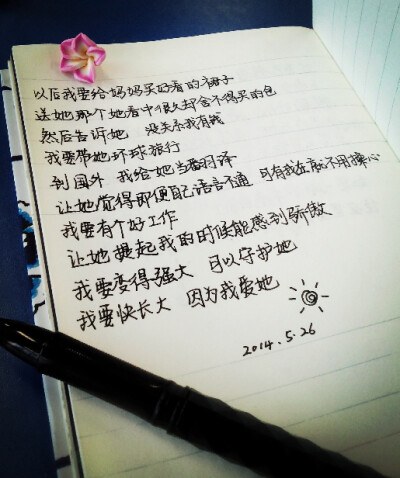 以后我要给妈妈买好看的裙子
送她那个她看中很久却舍不得买的包
然后告诉她 没关系我有钱
我要带她环球旅行
到国外 我给她当翻译
让她觉得即便自己语言不通 可有我在就不用操心
我要有个好工作
让她提起我的时候能感到骄傲
我要变得强大 可以守护她
我要快长大 因为我爱她
2014.5.26